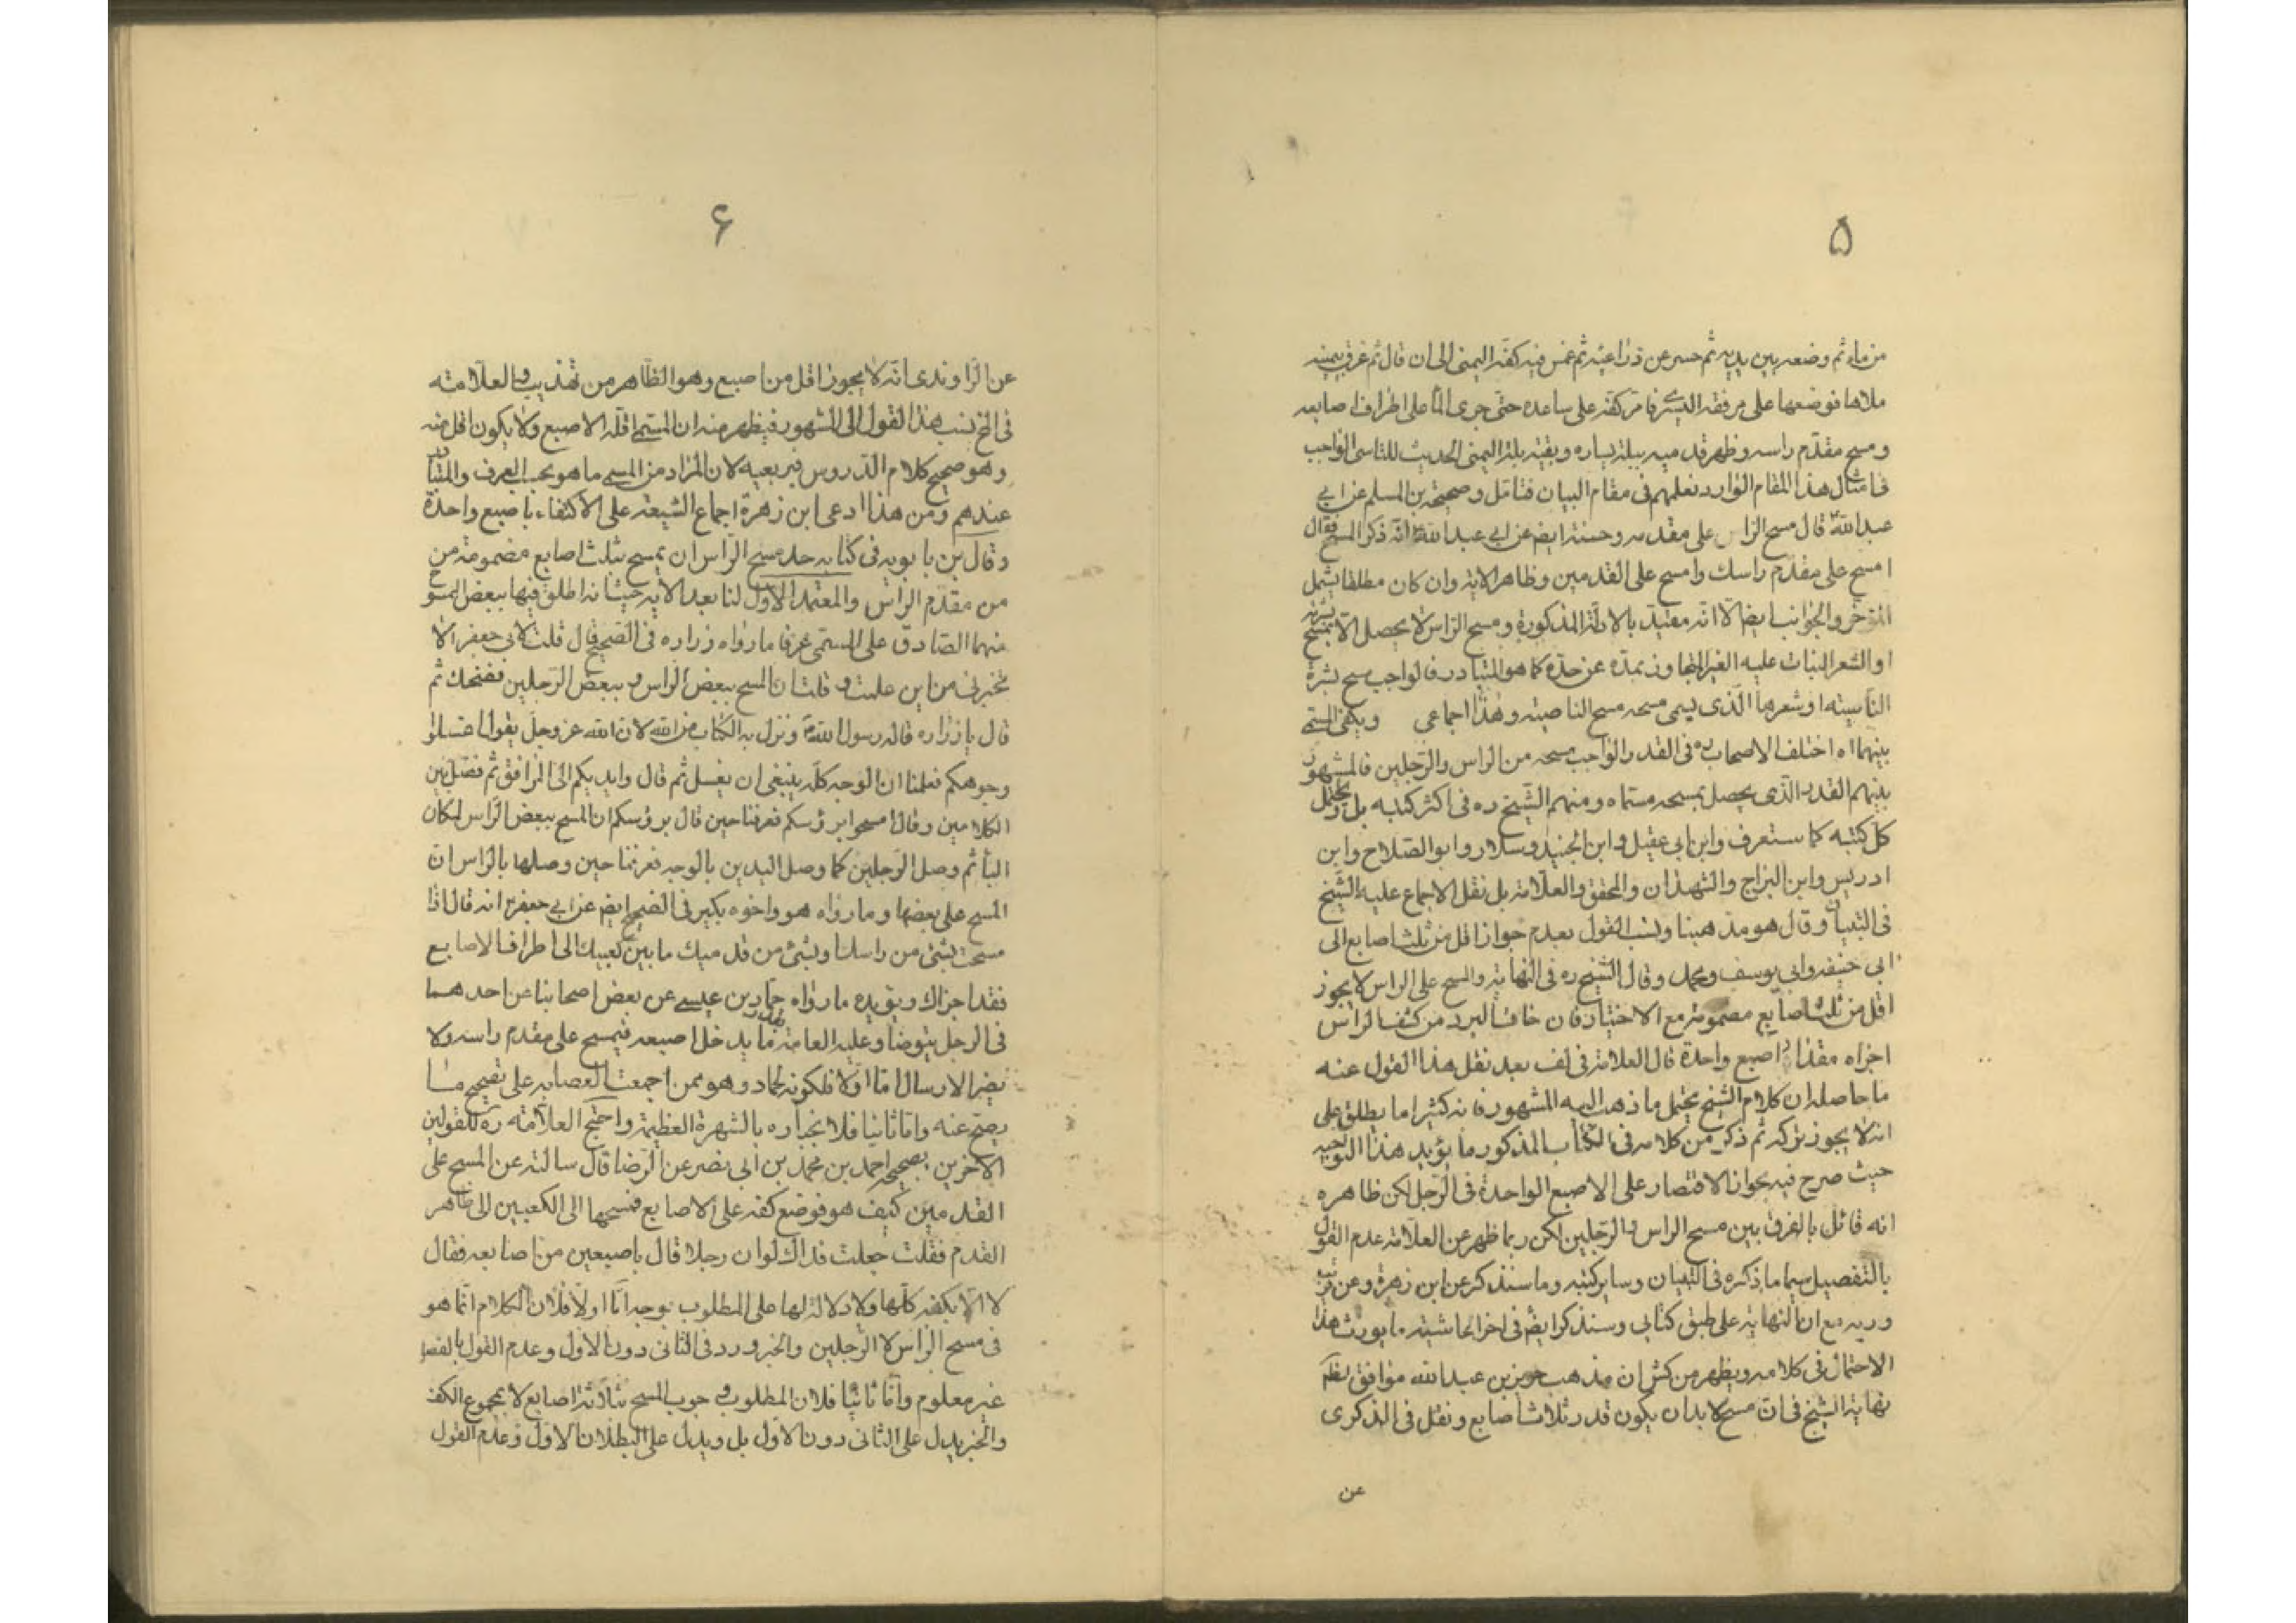 ۵
من ماء ثم وضعه بين يديه ثم حسر عن ذراعيه ثم غمس فيه كفه اليمنى الى ان قال ثم غرف بيمينه
ملاها فوضعها على مرفقه اليسرى فامر كفه على ساعده حتى جرى الماء على اطراف اصابعه
و مسح مقدّم راسه و ظهر قدميه ببلة يساره و بقية بلة اليمنى الحديث للتاسى الواجب
فى امثال هذا المقام الوارد نعليهم فى مقام البيان فتامل و صحيحة بن المسلم عن ابي
عبد الله قال مسح الراس على مقدمه و حسنته ايضا عن ابي عبد الله انه ذكر المسح فقال
امسح على مقدّم راسك وامسح على القدمين و ظاهر الاية وان كان مطلقا يشمل
المؤخر والجوانب ايضا الا انه مقيد بالادلة المذكورة و مسح الراس لا يحصل الا بمسح بشرته
او الشعر النبات عليه الغير المتجاوز بمدّه عن حدّه كما هو المتبادر فالواجب مسح بشرة
الناصيته او شعرها الّذى يسمى مسحه مسح الناصيته و هذا اجماعى ويكفى المسمى
بينهما اه اختلف الاصحاب ره فى القدر الواجب مسحه من الراس والرّجلين فالمشهور
بينهم القدر الّذى يحصل بمسحه مسمّاه و منهم الشّيخ ره فى اكثر كتبه بل و يحتمل
كل كتبه كما ستعرف وابن ابى عقيل وابن الجنيد و سلار وابو الصّلاح وابن
ادريس وابن البرّاج والشهيدان والمحقق والعلامة بل نقل الاجماع عليه الشّيخ
فى التبيان و قال هو مذهبنا و نسب القول بعدم جواز اقل من ثلث اصابع الى
ابى حنيفه وابى يوسف و محمد و قال الشّيخ ره فى النهاية و المسح على الراس لا يجوز
اقل من ثلث اصابع مضمومة مع الاختيار فان خاف البرد من كشف الراس
اجزاه مقدار اصبع واحدة قال العلامة فى لف بعد نقل هذا القول عنه
ما حاصله ان كلام الشيخ يحتمل ما ذهب اليه المشهور فانه كثيرا ما يطلق على
انه لا يجوز تركه ثم ذكر من كلامه فى الكتاب المذكور ما يؤيد هذا التوجيه
حيث صرح فيه بجواز الاقتصار على الاصبع الواحدة فى الرّجل لكن ظاهره
انه قائل بالفرق بين مسح الراس و الرّجلين لكن ربما ظهر عن العلامة عدم القول
بالتفصيل سيما ما ذكره فى التبيان و ساير كتبه وما سنذكر عن ابن زهرة و عن
وريه مع ان النهاية على طبق كتابي و سنذكر ايضا فى اخر الحاشية ما يورث هذا
الاحتمال فى كلامه و يظهر من كش ان مذهب حريز بن عبد الله موافق لظم
نهاية الشيخ فى انّ مسح لا بد ان يكون قدر ثلاث اصابع و نقل فى الذكرى
عن
۶
عن الراوندى انه لا يجوز اقل من اصبع و هو الظاهر من تهذيب و العلامته
فى المخ نسب هذا القول الى المشهور فيظهر منه ان المسمى اقله الاصبع ولا يكون اقل منه
و هو صحيح كلام الدروس فى لان المراد من المسمى ما هو بحسب العرف والمتبادر
عندهم و من هذا ادعى ابن زهرة اجماع الشيعة على الاكتفاء باصبع واحدة
و قال بن بابويه فى كتابه حد مسح الرّاس ان يمسح بثلث اصابع مضمومة من
من مقدّم الراس والمعتمد الاول لنا بعد الاية حيث انه اطلق فيها ببعض الممسوح
منهما الصّادق على المسمّى عرفا ما رواه زراره فى الصّحيح قال قلت لابى جعفر الا
تخبرنى من اين علمت و قلت ان المسح ببعض الراس و ببعض الرّجلين فضحك ثم
قال يا زراره قاله رسول الله و نزل به الكتاب من الله لان الله عز و جل يقول اغسلوا
وجوهكم فعلمنا ان الوجه كلّه ينبغى ان يغسل ثم قال و ايديكم الى المرافق ثم فصّل بين
الكلامين و قال امسحوا برؤسكم فعرفنا حين قال برؤسكم ان المسح ببعض الرّاس لمكان
الباء ثم وصل الرّجلين كما وصل اليدين بالوجه فعرفنا حين وصلها بالراس ان
المسح على بعضها و ما رواه هو واخوه بكير فى الصحيح ايضا عن ابي جعفر انه قال اذا
مسحت بشئ من راسك او بشئ من قدميك ما بين كعبيك الى اطراف الاصابع
فقد اجزاك و يؤيده ما رواه حمّاد بن عيسى عن بعض اصحابنا عن احدهما
فى الرجل يتوضا و عليه العمامة ما بقدر يدخل اصبعه فيمسح على مقدم راسه ولا
يضر الارسال امّا اولا فلكونه لحماد و هو ممن اجمعت العصابه على تصحيح ما
يصحّ عنه وامّا ثانيا فلانجباره بالشهرة العظيمة و احتج العلامة ره للقولين
الاخرين بصحيح احمد بن محمد بن ابى نصر عن الرّضا قال سالته عن المسح على
القدمين كيف هو فوضع كفه على الاصابع فمسحها الى الكعبين الى ظاهر
القدم فقلت جعلت فداك لو ان رجلا قال باصبعين من اصابعه فقال
لا الا بكفه كلّها ولا دلالة لها على المطلوب بوجه امّا اولا فلان الكلام انّما هو
فى مسح الرّاس لا الرّجلين والخبر ورد فى الثانى دون الاول و عدم القول بالفصل
غير معلوم و امّا ثانيا فلان المطلوب و جوب المسح بثلاثة اصابع لا بمجموع الكف
والخبر يدل على الثانى دون الاول بل و يدل على البطلان الاول و عدم القول